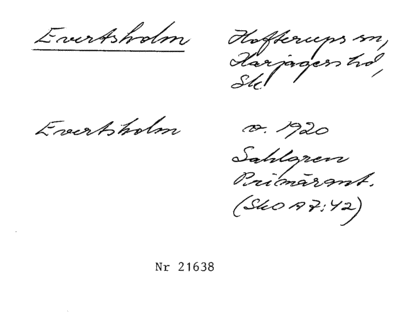 Evertsholm
Hofterups sn,
Harjagers hd,
Sk
Evertsholm
o. 1920
Sahlgren
Primäruppt.
(SkO A7:42)
Nr 21638